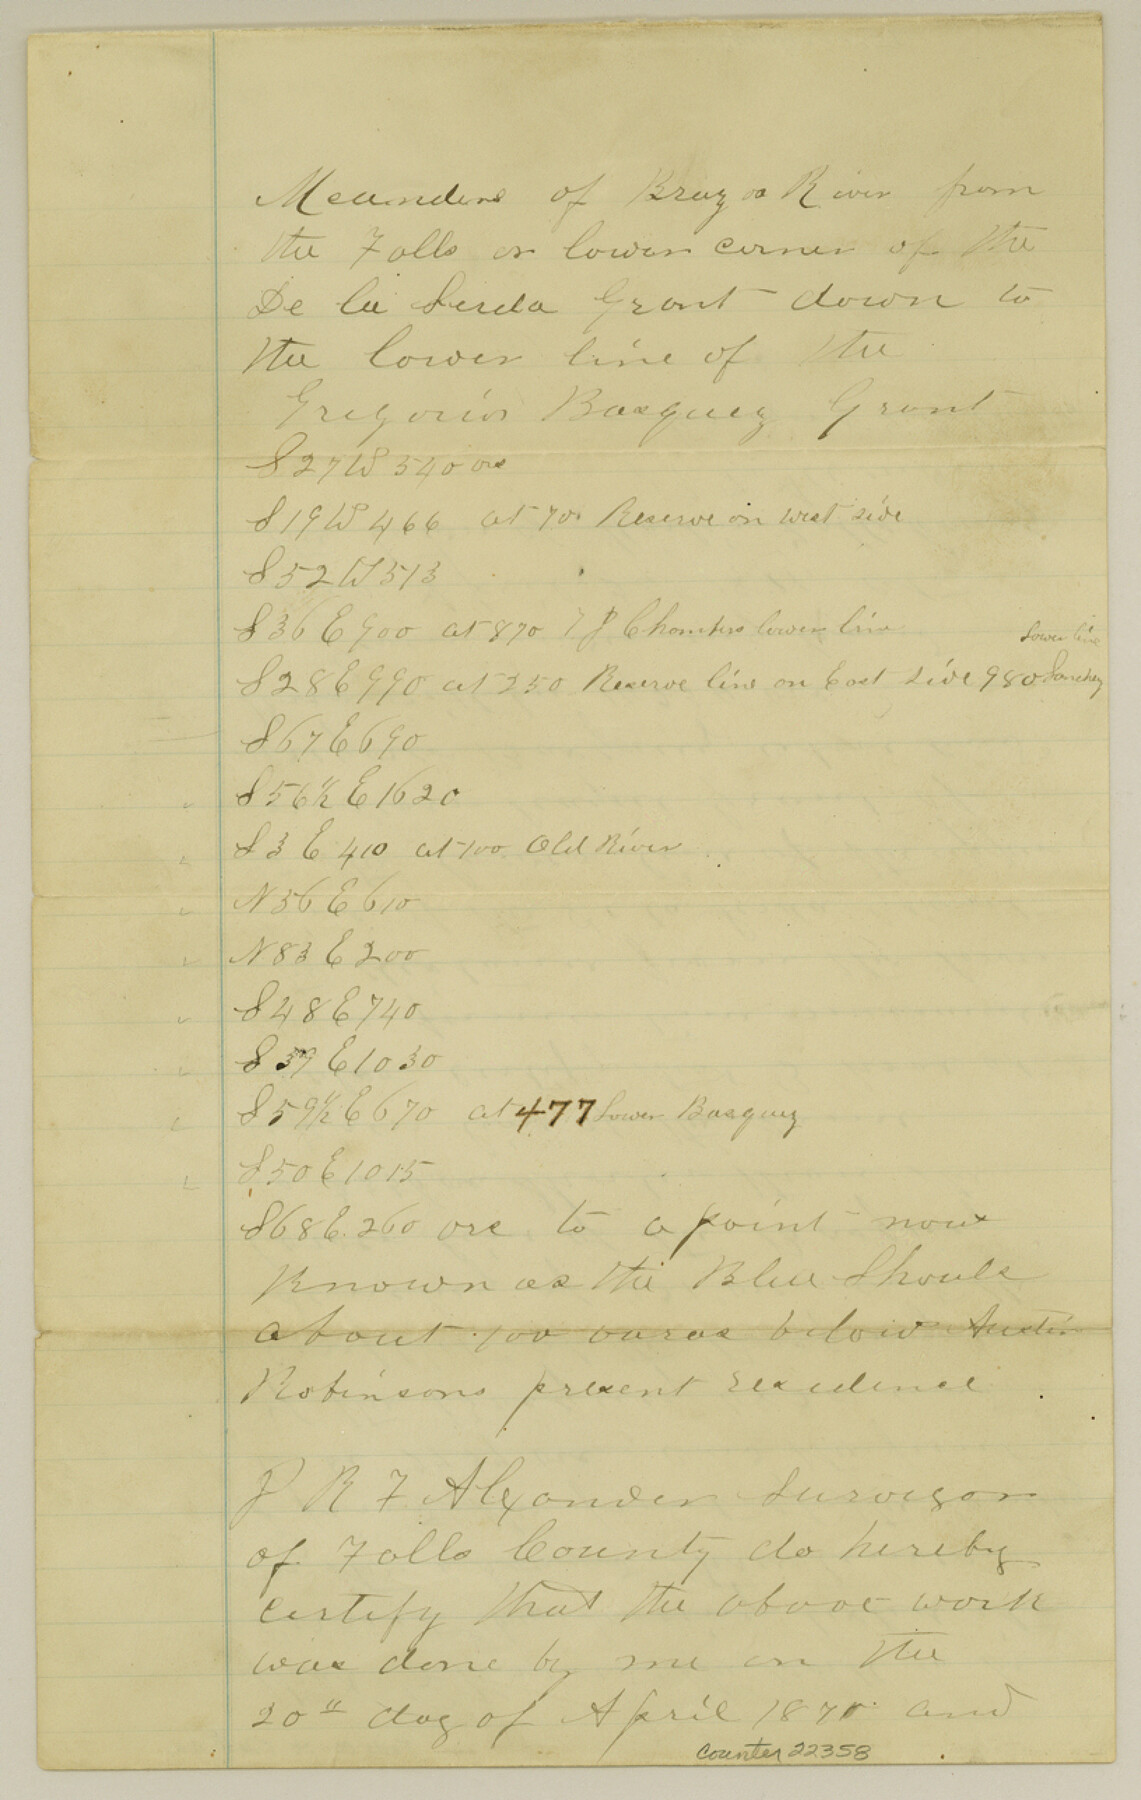 Meanders of Brazos River from
the Falls or lower corner of the
De la Serda Grant down to
the lower line of the
Gregorios Basquez Grant
S 27 W 540 vrs
S 19 W 466 at 70 Reserve on west side
S 52 W 513
S 36 E 900 at 870 T J Chambers lower line
lower line
S 28 E 990 at 250 Reserve line on East side 980 Sanchez
S 67 E 690
S 56½ E 1620
S 3 E 410 at 100 Old River
N 36 E 610
N 83 E 200
S 48 E 740
S 39 E 1030
S 59½ E 670 at 477 Lower Basquez
S 50 E 1015
S 68 E. 260 vrs to a point now
known as the Blue Shouls
about 100 varas below Austin
Robinsons present residence
I R F Alexander Surveyor
of Falls County do hereby
certify that the above work
was done by me on the
20th day of April 1870 and
counter 22358